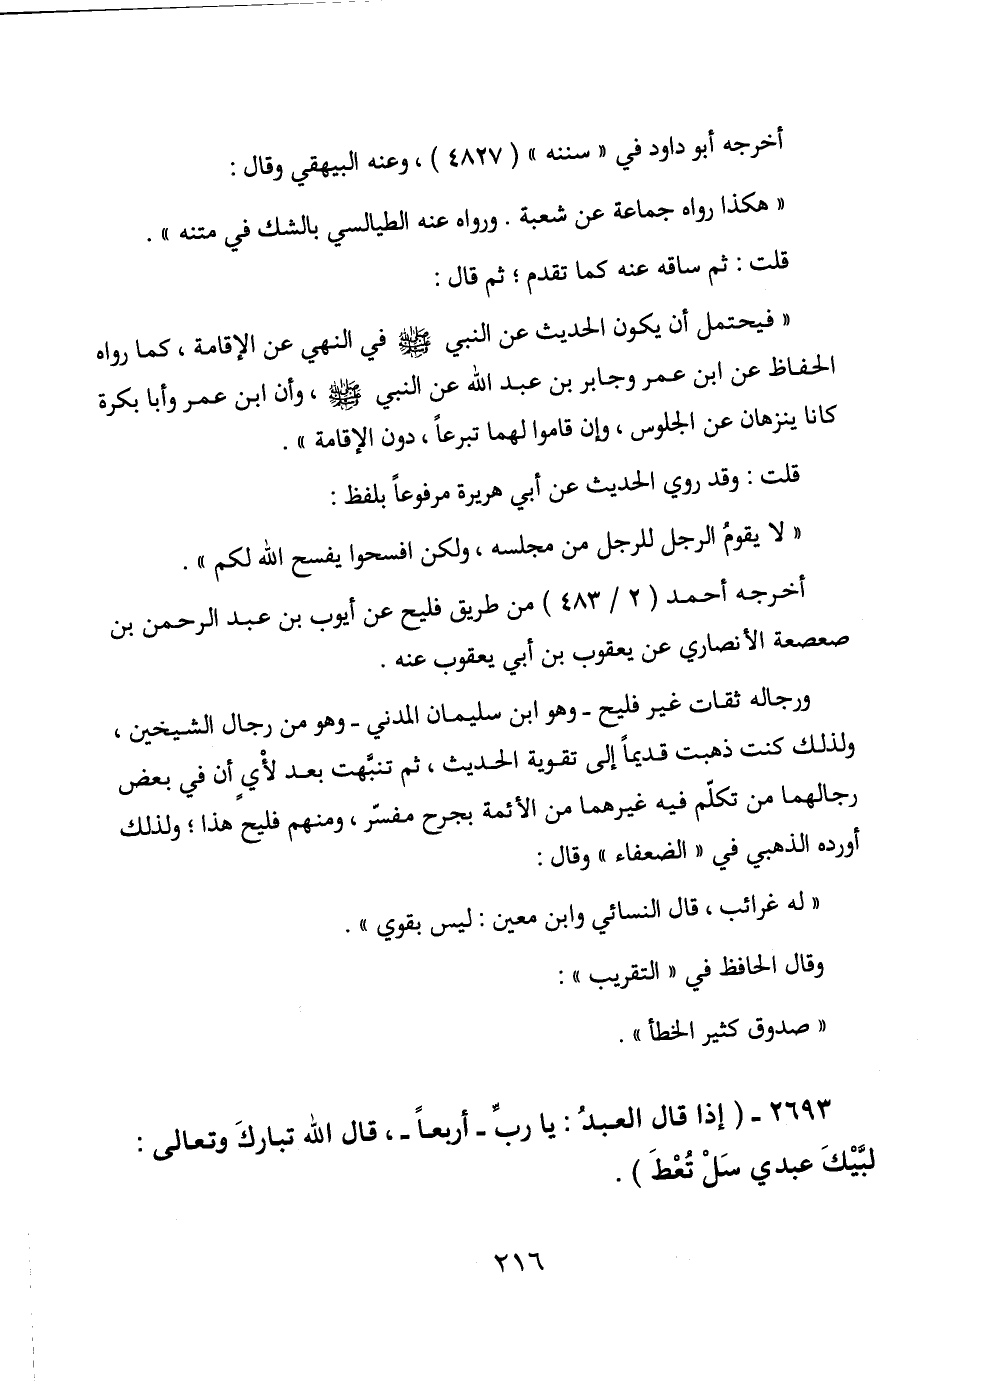 أخرجه أبو داود في « سننه » ( ٤٨٢٧ ) ، وعنه البيهقي وقال :
« هكذا رواه جماعة عن شعبة . ورواه عنه الطيالسي بالشك في متنه » .
قلت : ثم ساقه عنه كما تقدم ؛ ثم قال :
« فيحتمل أن يكون الحديث عن النبي ﷺ في النهي عن الإقامة ، كما رواه
الحفاظ عن ابن عمر وجابر بن عبد الله عن النبي ﷺ ، وأن ابن عمر وأبا بكرة
كانا ينزهان عن الجلوس ، وإن قاموا لهما تبرعاً ، دون الإقامة » .
قلت : وقد روي الحديث عن أبي هريرة مرفوعاً بلفظ :
« لا يقومُ الرجل للرجل من مجلسه ، ولكن افسحوا يفسح الله لكم » .
أخرجه أحمد ( ٢ / ٤٨٣ ) من طريق فليح عن أيوب بن عبد الرحمن بن
صعصعة الأنصاري عن يعقوب بن أبي يعقوب عنه .
ورجاله ثقات غير فليح ـ وهو ابن سليمان المدني ـ وهو من رجال الشيخين ،
ولذلك كنت ذهبت قديماً إلى تقوية الحديث ، ثم تنبَّهت بعد لأْيٍ أن في بعض
رجالهما من تكلّم فيه غيرهما من الأئمة بجرح مفسّر ، ومنهم فليح هذا ؛ ولذلك
أورده الذهبي في « الضعفاء » وقال :
« له غرائب ، قال النسائي وابن معين : ليس بقوي » .
وقال الحافظ في « التقريب » :
« صدوق كثير الخطأ » .
٢٦٩٣ ـ ( إذا قال العبدُ : يا ربِّ ـ أربعاً ـ ، قال الله تباركَ وتعالى :
لبَّيْكَ عبدي سَلْ تُعْطَ ) .
٢١٦